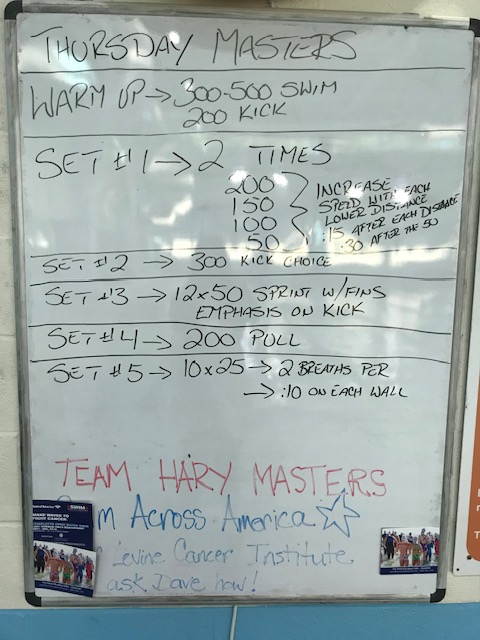 THURSDAY MASTERS
WARM UP → 300-500 SWIM
200 KICK
SET #1 → 2 TIMES
200
150
100
50
INCREASE
SPEED WITH EACH
LOWER DISTANCE
:15 AFTER EACH DISTANCE
:30 AFTER THE 50
SET #2 → 300 KICK CHOICE
SET #3 → 12x50 SPRINT W/FINS
EMPHASIS ON KICK
SET #4 → 200 PULL
SET #5 → 10x25 → 2 BREATHS PER
→ :10 ON EACH WALL
TEAM HARY MASTERS
m Across America
Levine Cancer Institute
ask Dave how!
MAKE WAVES TO
FIGHT CANCER
SWIM